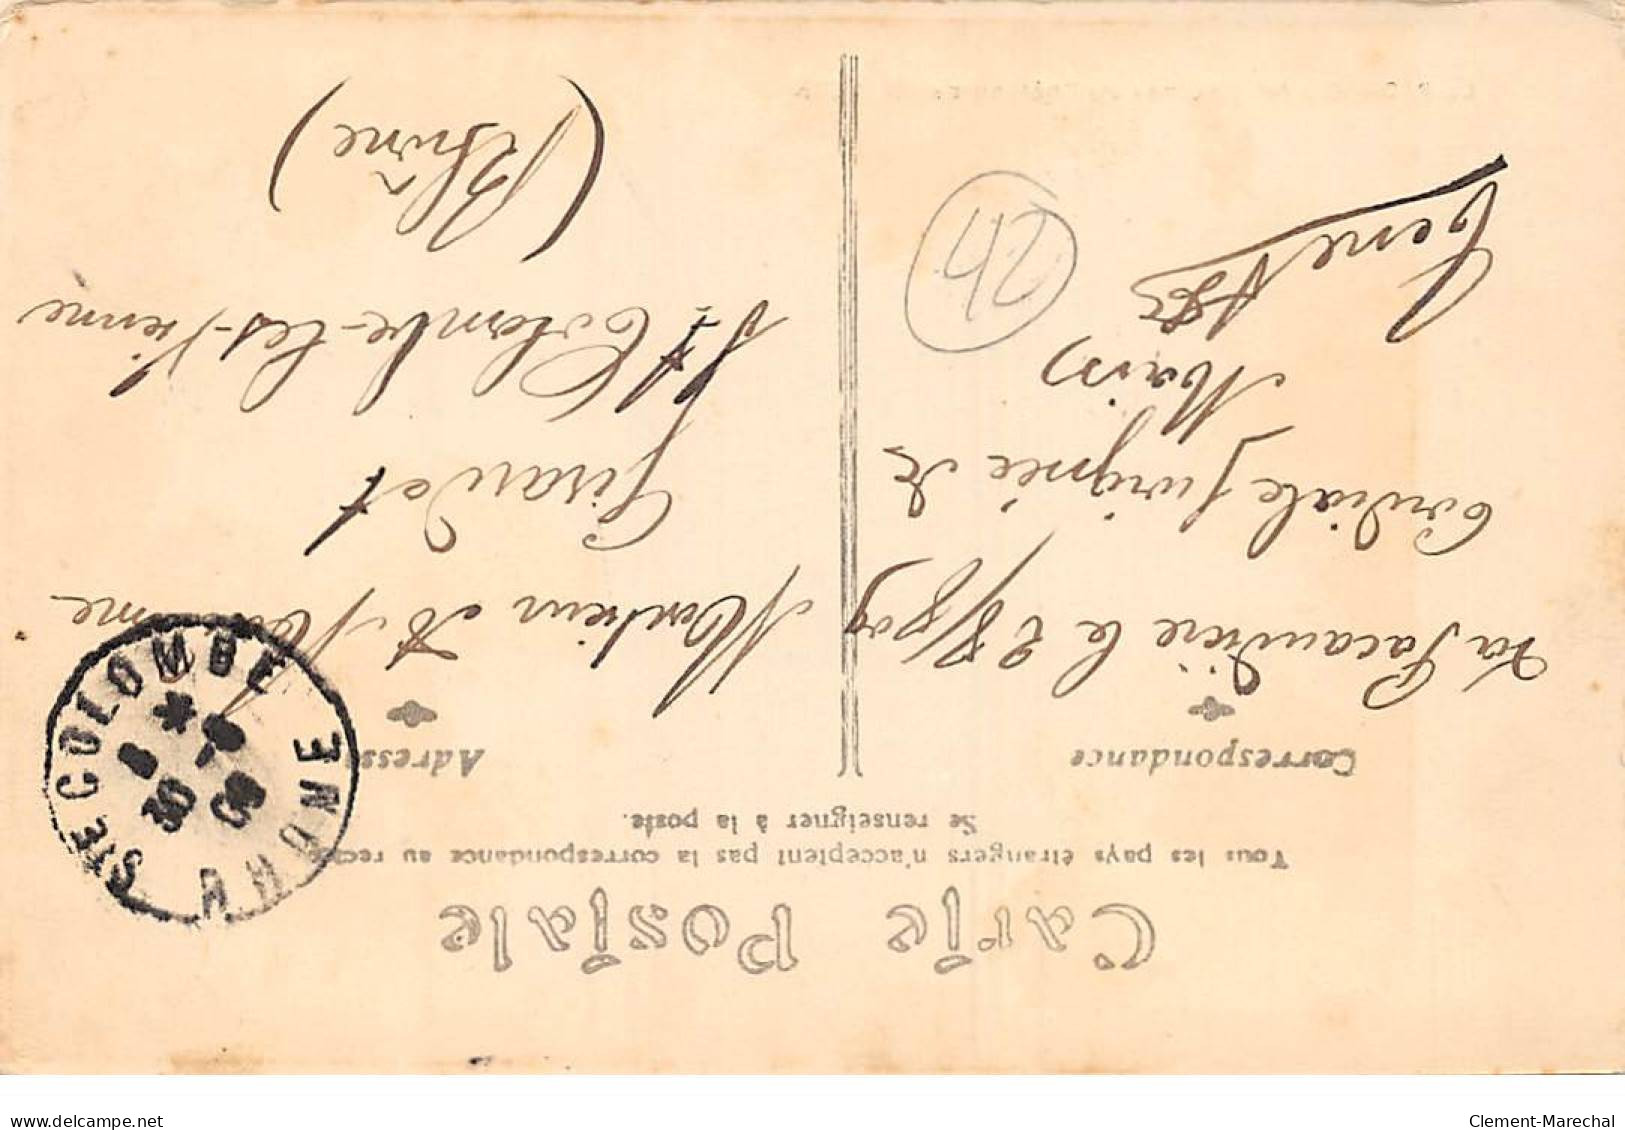 Carte Postale
Tous les pays étrangers n'acceptent pas la correspondance au recto
Se renseigner à la poste.
Correspondance
Adresse
La Pacaudière le 28/8/09
Cordiale poignée de
Mains
Monsieur
Girardet
Ste Colombe-les-Vienne
(Rhône)
24
STE COLOMBE
RHONE
8 * 30 -8 09
www.delcampe.net
Clement-Marechal